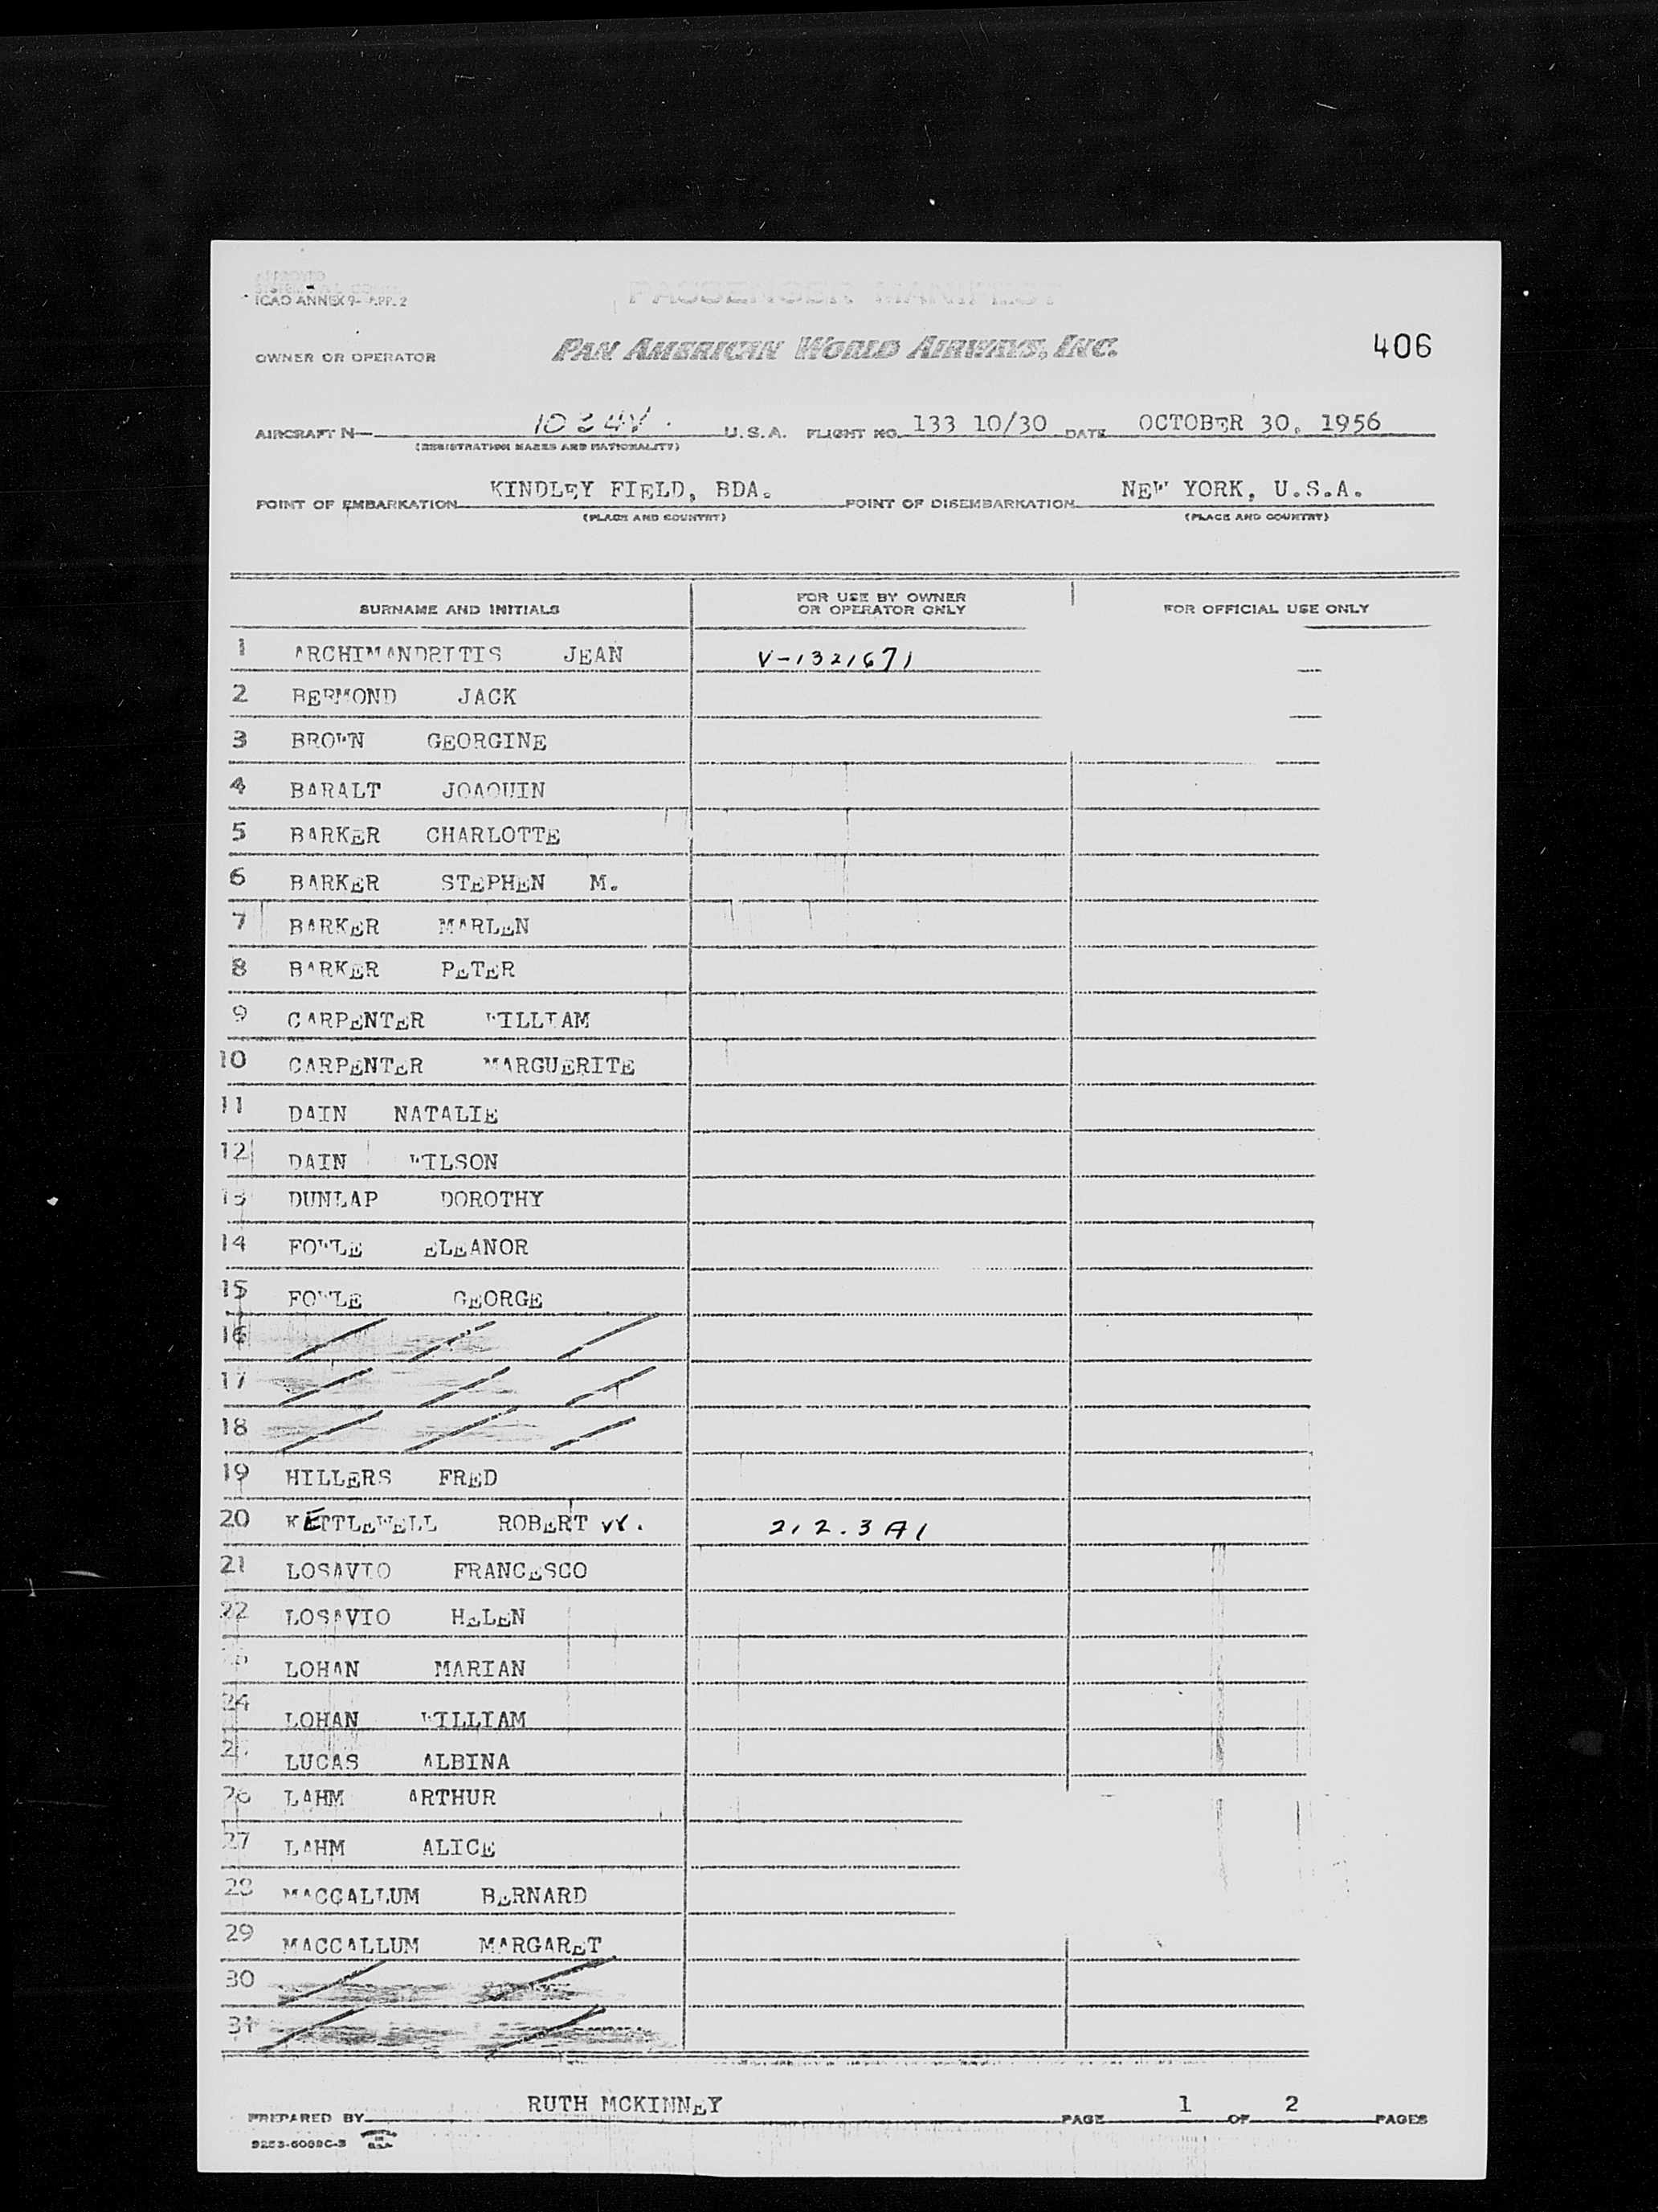 ICAO ANNEX 9- APP. 2
PASSENGER MANIFEST
OWNER OR OPERATOR PAN AMERICAN WORLD AIRWAYS, INC. 406
AIRCRAFT N— 1024V. U.S.A. FLIGHT NO. 133 10/30 DATE OCTOBER 30, 1956
(REGISTRATION MARKS AND NATIONALITY)
POINT OF EMBARKATION KINDLEY FIELD, BDA. POINT OF DISEMBARKATION NEW YORK, U.S.A.
(PLACE AND COUNTRY) (PLACE AND COUNTRY)
SURNAME AND INITIALS FOR USE BY OWNER OR OPERATOR ONLY FOR OFFICIAL USE ONLY
1 ARCHIMANDRITIS JEAN V-1321671
2 BERMOND JACK
3 BROWN GEORGINE
4 BARALT JOAQUIN
5 BARKER CHARLOTTE
6 BARKER STEPHEN M.
7 BARKER MARLEN
8 BARKER PETER
9 CARPENTER WILLIAM
10 CARPENTER MARGUERITE
11 DAIN NATALIE
12 DAIN WILSON
13 DUNLAP DOROTHY
14 FOWLE ELEANOR
15 FOWLE GEORGE
16
17
18
19 HILLERS FRED
20 KETTLEWELL ROBERT W. 212.3A1
21 LOSAVIO FRANCESCO
22 LOSAVIO HELEN
LOHAN MARIAN
24 LOHAN WILLIAM
LUCAS ALBINA
26 LAHM ARTHUR
27 LAHM ALICE
28 MACCALLUM BERNARD
29 MACCALLUM MARGARET
30
31
PREPARED BY RUTH MCKINNEY PAGE 1 OF 2 PAGES